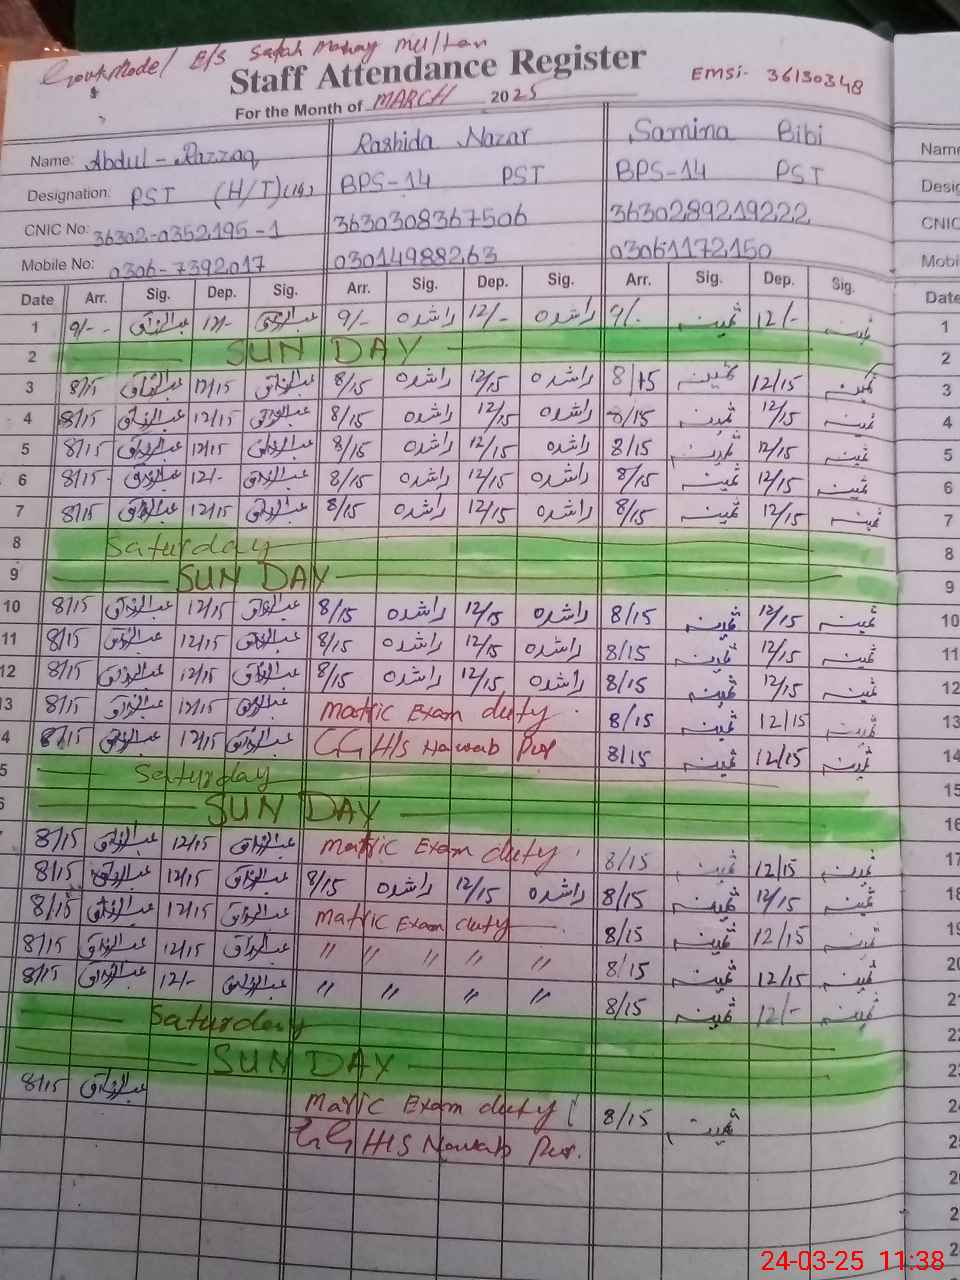 Govt Model E/S Salah Mahay Multan
Staff Attendance Register
EMSi- 36130348
For the Month of MARCH 2025
Name: Abdul-Razzaq Rashida Nazar Samina Bibi Name
Designation: PST (H/T) BPS-14 PST BPS-14 PST Desig
CNIC No: 36302-0352195-1 3630308367506 3630289219222 CNIC
Mobile No: 0306-7392017 03014988263 03061172150 Mobi
Date Arr. Sig. Dep. Sig. Arr. Sig. Dep. Sig. Arr. Sig. Dep. Sig. Date
1 9/- عبدالرزاق 12/- عبدالرزاق 9/- راشدہ 12/- راشدہ 9/- ثمینہ 12/- ثمینہ 1
2 SUN DAY 2
3 8/15 عبدالرزاق 12/15 عبدالرزاق 8/15 راشدہ 12/15 راشدہ 8/15 ثمینہ 12/15 ثمینہ 3
4 8/15 عبدالرزاق 12/15 عبدالرزاق 8/15 راشدہ 12/15 راشدہ 8/15 ثمینہ 12/15 ثمینہ 4
5 8/15 عبدالرزاق 12/15 عبدالرزاق 8/15 راشدہ 12/15 راشدہ 8/15 ثمینہ 12/15 ثمینہ 5
6 8/15 عبدالرزاق 12/- عبدالرزاق 8/15 راشدہ 12/15 راشدہ 8/15 ثمینہ 12/15 ثمینہ 6
7 8/15 عبدالرزاق 12/15 عبدالرزاق 8/15 راشدہ 12/15 راشدہ 8/15 ثمینہ 12/15 ثمینہ 7
8 Saturday 8
9 SUN DAY 9
10 8/15 عبدالرزاق 12/15 عبدالرزاق 8/15 راشدہ 12/15 راشدہ 8/15 ثمینہ 12/15 ثمینہ 10
11 8/15 عبدالرزاق 12/15 عبدالرزاق 8/15 راشدہ 12/15 راشدہ 8/15 ثمینہ 12/15 ثمینہ 11
12 8/15 عبدالرزاق 12/15 عبدالرزاق 8/15 راشدہ 12/15 راشدہ 8/15 ثمینہ 12/15 ثمینہ 12
3 8/15 عبدالرزاق 12/15 عبدالرزاق Matric Exam duty 8/15 ثمینہ 12/15 ثمینہ 13
4 8/15 عبدالرزاق 12/15 عبدالرزاق GG H/S Nawab Pur 8/15 ثمینہ 12/15 ثمینہ 14
5 Saturday 15
6 SUN DAY 16
8/15 عبدالرزاق 12/15 عبدالرزاق Matric Exam duty 8/15 ثمینہ 12/15 ثمینہ 17
8/15 عبدالرزاق 12/15 عبدالرزاق 8/15 راشدہ 12/15 راشدہ 8/15 ثمینہ 12/15 ثمینہ 18
8/15 عبدالرزاق 12/15 عبدالرزاق Matric Exam duty 8/15 ثمینہ 12/15 ثمینہ 19
8/15 عبدالرزاق 12/15 عبدالرزاق " " " " " 8/15 ثمینہ 12/15 ثمینہ 20
8/15 عبدالرزاق 12/- عبدالرزاق " " " " 8/15 ثمینہ 12/- ثمینہ 21
Saturday 22
SUN DAY 23
8/15 عبدالرزاق Matric Exam duty 8/15 ثمینہ 24
GG H/S Nawab Pur. 25
24-03-25 11:38